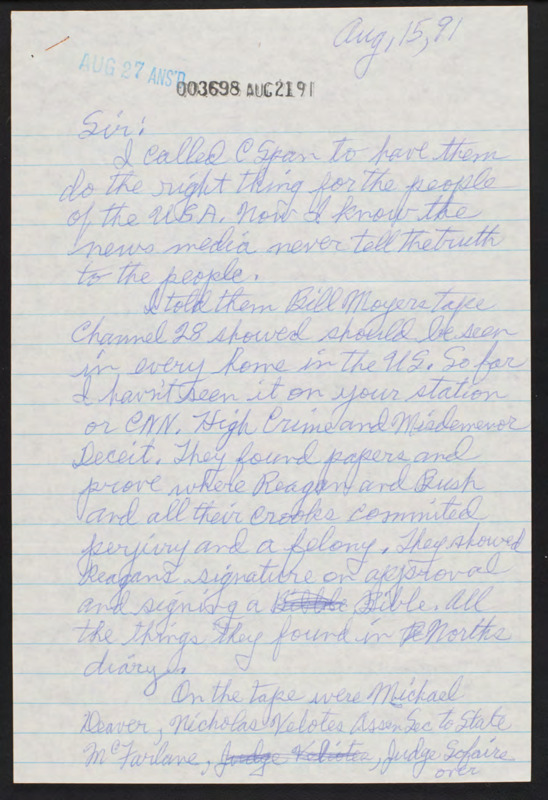 Aug, 15, 91
AUG 27 ANS'D
003698 AUG2191
Sir:
I called C Span to have them
do the right thing for the people
of the USA. Now I know the
news media never tell the truth
to the people.
I told them Bill Moyers tape
Channel 28 showed should be seen
in every home in the US. So far
I havn't seen it on your station
or CNN. High Crime and Misdemenor
Deceit. They found papers and
prove where Reagan and Bush
and all their crooks commited
perjury and a felony. They showed
Reagans signature on approval
and signing a Bible. All
the things they found in Norths
diary.
On the tape were Michael
Deaver, Nicholas Velotes Assen Sec to State
McFarlane, Judge Velotes, Judge Sofaire
over